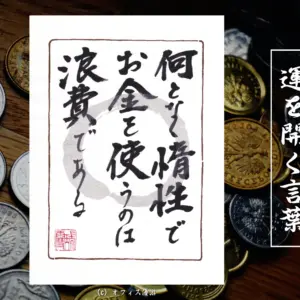 何となく惰性で
お金を使うのは
浪費である
運を開く言葉